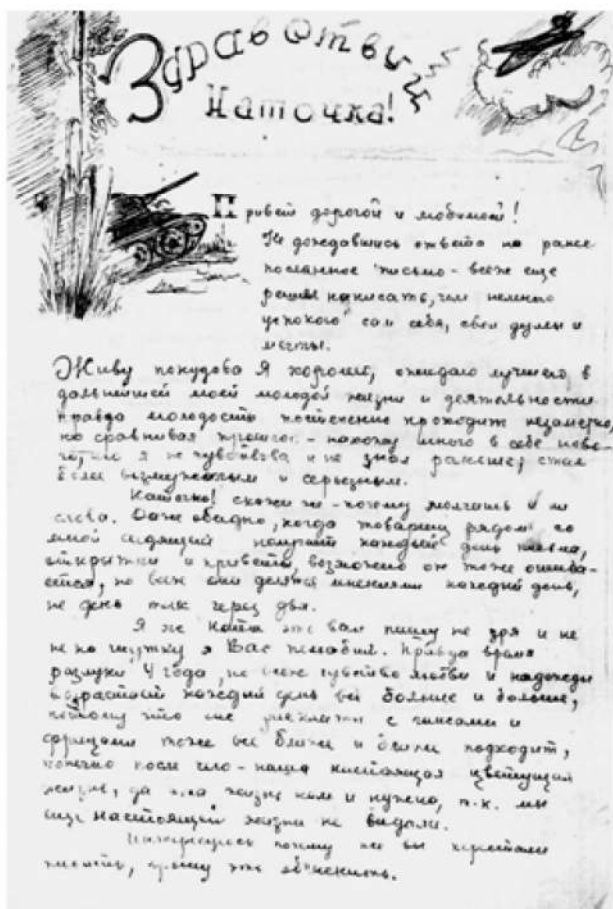 Здравствуй
Наточка!
Привет дорогой и любимой!
Не дождавшись ответа на ранее
посланное письмо - всёж еще
решил написать, чем немного
успокою сам себя, свои думы и
мечты.
Живу покудова я хорошо, ожидаю лучшего в
дальнейшей моей молодой жизни и деятельности
правда молодость постепенно проходит незаметно,
но сравнивая прошлое - нахожу много в себе ново-
го, я не чувствовал и не знал раньше, стал
более возмужалым и серьезным.
Наточка! скажи же - почему молчишь и ни
слова. Даже обидно, когда товарищ рядом со
мной сидящий получает каждый день письма,
открытки и приветы, возможно он тоже ошиба-
ется, но всёж они делятся мнениями каждый день,
не день так через два.
Я же Ната это вам пишу не зря и не
не на шутку я Вас полюбил. Правда время
разлуки 4 года, но всёж чувство любви и надежды
возрастает каждый день всё больше и больше,
потому что с гансами и
фрицами тоже всё ближе и ближе подходит,
конечно после чего - наша настоящая цветущая
жизнь, да и эта жизнь нам и нужна, т.к. мы
еще настоящей жизни не видали.
Интересуюсь почему же вы перестали
писать, прошу это объяснить.